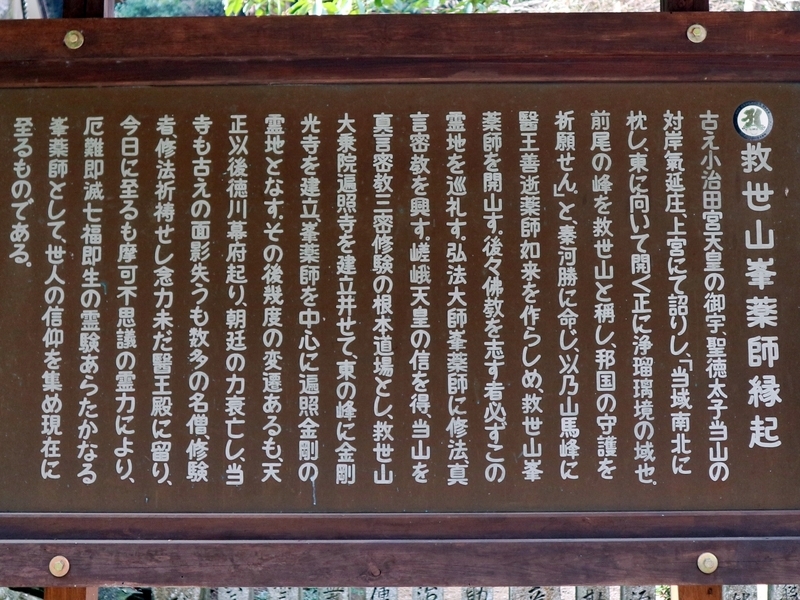 救世山峯薬師縁起
古え小治田宮天皇の御宇、聖徳太子当山の
対岸氣延庄、上宮にて詔りし、「当域南北に
枕し、東に向いて開く正に浄瑠璃境の域也。
前尾の峰を救世山と稱し、邦国の守護を
祈願せん」と、秦河勝に命じ、以乃山馬峰に
醫王善逝薬師如来を作らしめ、救世山峯
薬師を開山す。後々佛教を志す者必ずこの
霊地を巡礼す。弘法大師峯薬師に修法、真
言密教を興す。嵯峨天皇の信を得、当山を
真言密教三密修験の根本道場とし、救世山
大乗院遍照寺を建立并せて、東の峰に金剛
光寺を建立、峯薬師を中心に遍照金剛の
霊地となす。その後幾度の変遷あるも、天
正以後徳川幕府起り、朝廷の力衰亡し、当
寺も古えの面影失うも数多の名僧、修験
者、修法祈祷せし念力未だ醫王殿に留り、
今日に至るも摩可不思議の霊力により、
厄難即滅七福即生の霊験あらたかなる
峯薬師として、世人の信仰を集め現在に
至るものである。